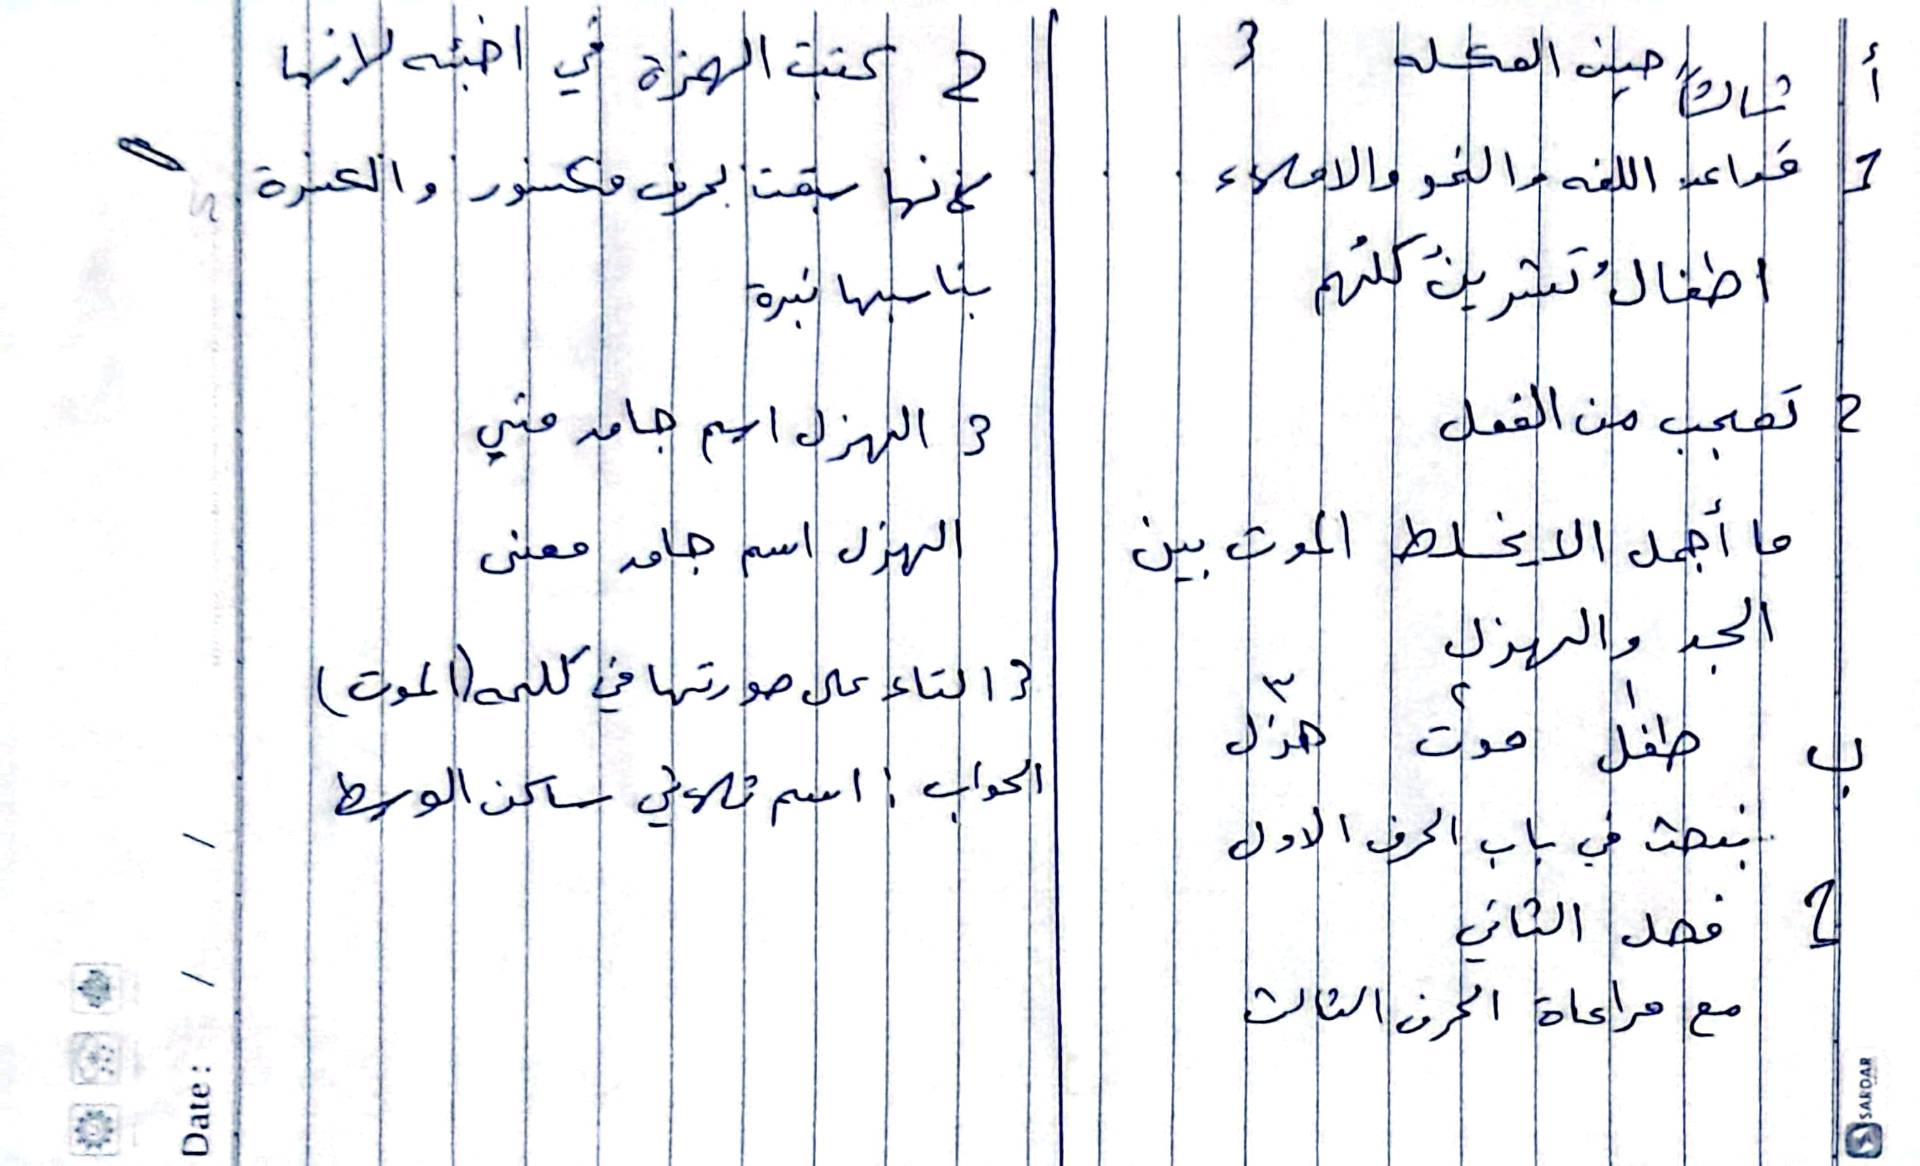 أ
حين المكـله 3
ثالثاً
1 قواعد اللغه والنحو والاملاء
اطفالُ تشرينَ كلُهم
2 تعجب من الفعل
ما أجمل الا يخلط الموت بين
الجد والهزل
ب طفل موت هزل
١ ٢ ٣
نبحث في باب الحرف الاول
2 فصل الثاني
مع مراعاة الحرف الثالث
2 كتبت الهمزة في اخبئه لانها
لانها سبقت بحرف مكسور والكسرة
يناسبها نبرة
3 الهزل اسم جامد
الهزل اسم جامد معنى
3 التاء على صورتها في كلمه (الموت)
الجواب : اسم ثلاثي ساكن الوسط
Date: / /
SARDAR